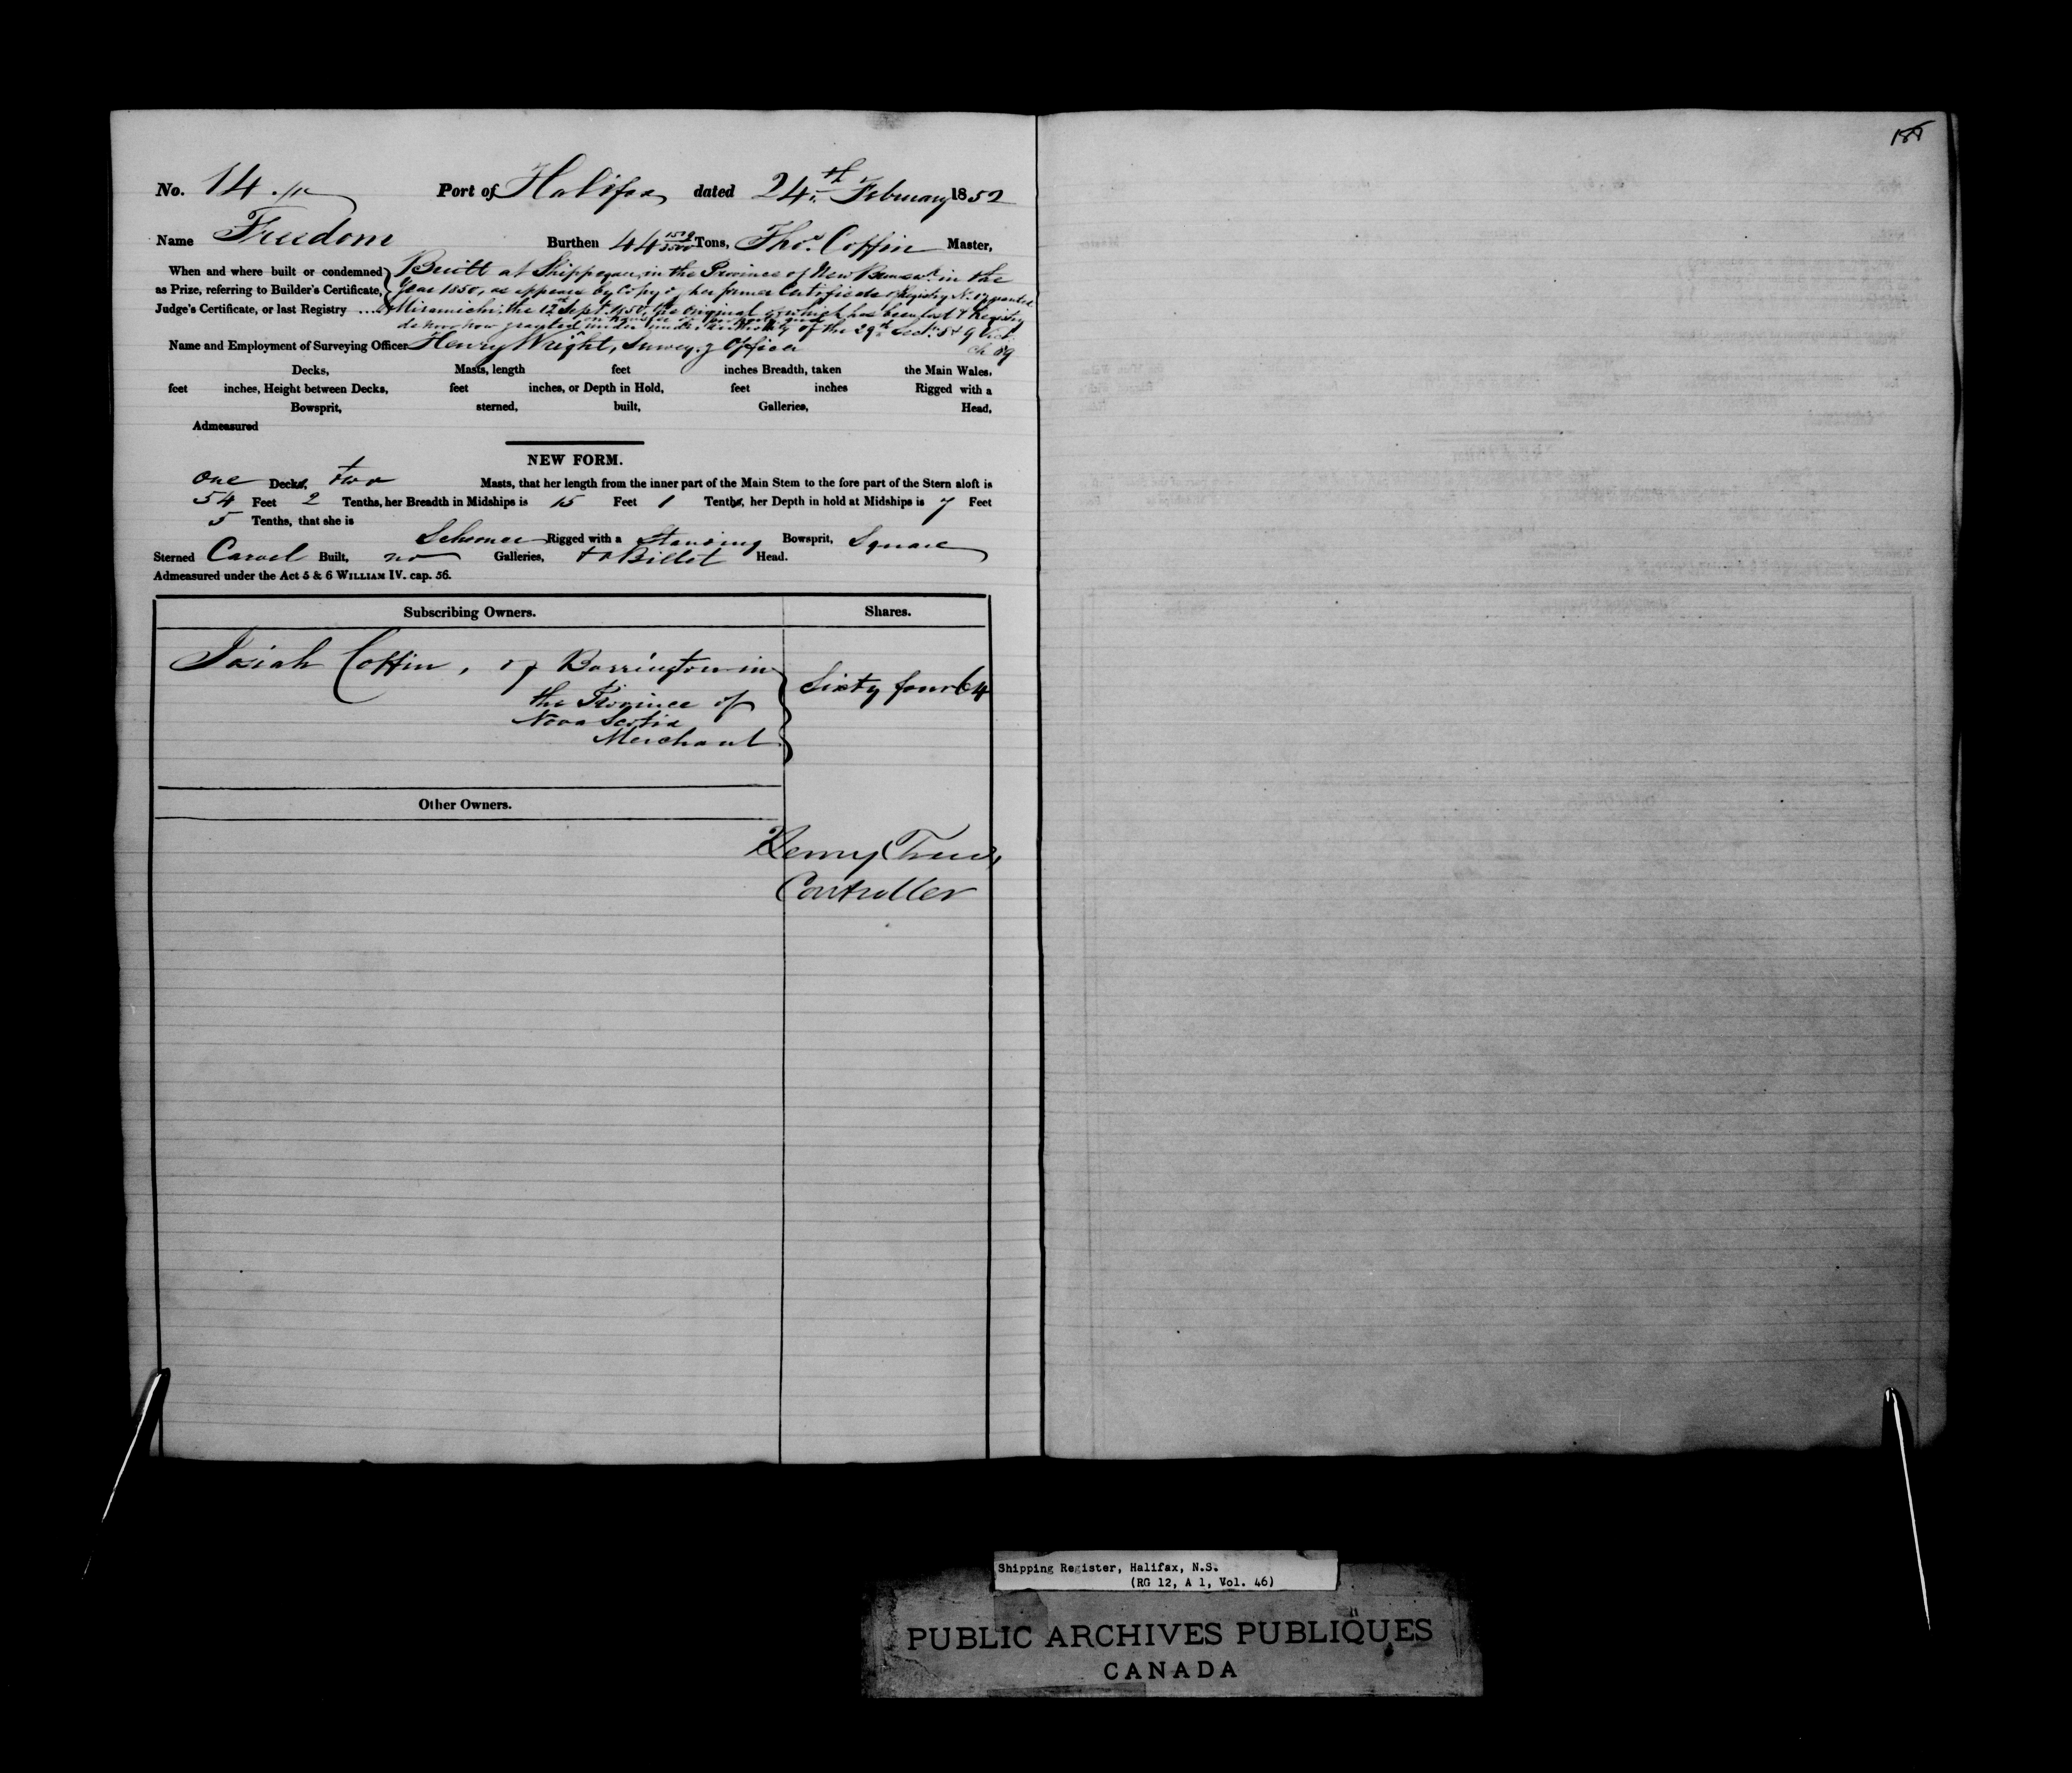 No. 14 Port of Halifax dated 24th February 1852
Name Freedom Burthen 44 Tons, Thos. Coffin Master,
When and where built or condemned Built at Shippegan in the Province of New Brunswk. in the
as Prize, referring to Builder's Certificate, Year 1850, as appears by Copy of her former Certificate of Registry No. 17 granted
Judge's Certificate, or last Registry .... at Miramichi the 12th Sept. 1850, the original of which has been lost & Registry
on transfer of property and
de novo now granted under authority of the 29th Sect. 8 & 9 Vict.
ch 89
Name and Employment of Surveying Officer Henry Wright, Surveyg Officer
Decks, Masts, length feet inches Breadth, taken the Main Wales,
feet inches, Height between Decks, feet inches, or Depth in Hold, feet inches Rigged with a
Bowsprit, sterned, built, Galleries, Head,
Admeasured
NEW FORM.
One Deck, two Masts, that her length from the inner part of the Main Stem to the fore part of the Stern aloft is
54 Feet 2 Tenths, her Breadth in Midships is 15 Feet 1 Tenth, her Depth in hold at Midships is 7 Feet
5 Tenths, that she is
Schooner Rigged with a Standing Bowsprit, Square
Sterned Carvel Built, no Galleries, & a Billet Head.
Admeasured under the Act 5 & 6 WILLIAM IV. cap. 56.
Subscribing Owners. Shares.
Josiah Coffin, of Barrington in
the Province of
Nova Scotia
Merchant
Sixty four 64
Other Owners.
Henry
Controller
Shipping Register, Halifax, N.S.
(RG 12, A 1, Vol. 46)
PUBLIC ARCHIVES PUBLIQUES
CANADA